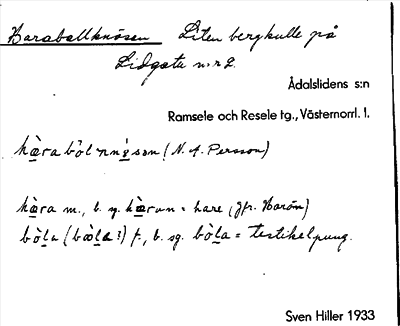 Haraballknösen Liten bergkulle på
Lidgatu nr 2.
Ådalslidens s:n
Ramsele och Resele tg., Västernorrl. l.
(N. A. Persson)
hàra m., b. sg. hàran = hare (jfr. Harön)
bòla f., b. sg. bòla = testikelpung.
Sven Hiller 1933